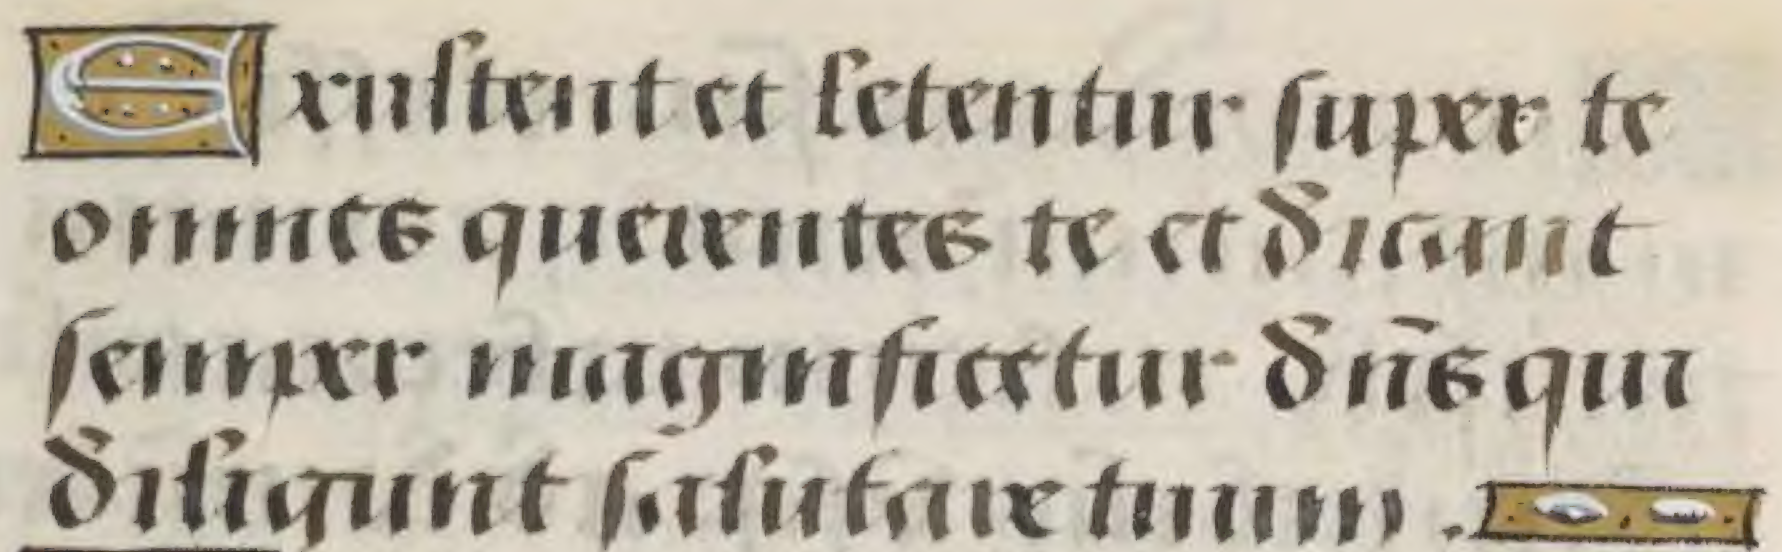 Exultent et letentur super te
omnes querentes te et dicant
semper magnificetur dn̄s qui
diligunt salutare tuum .